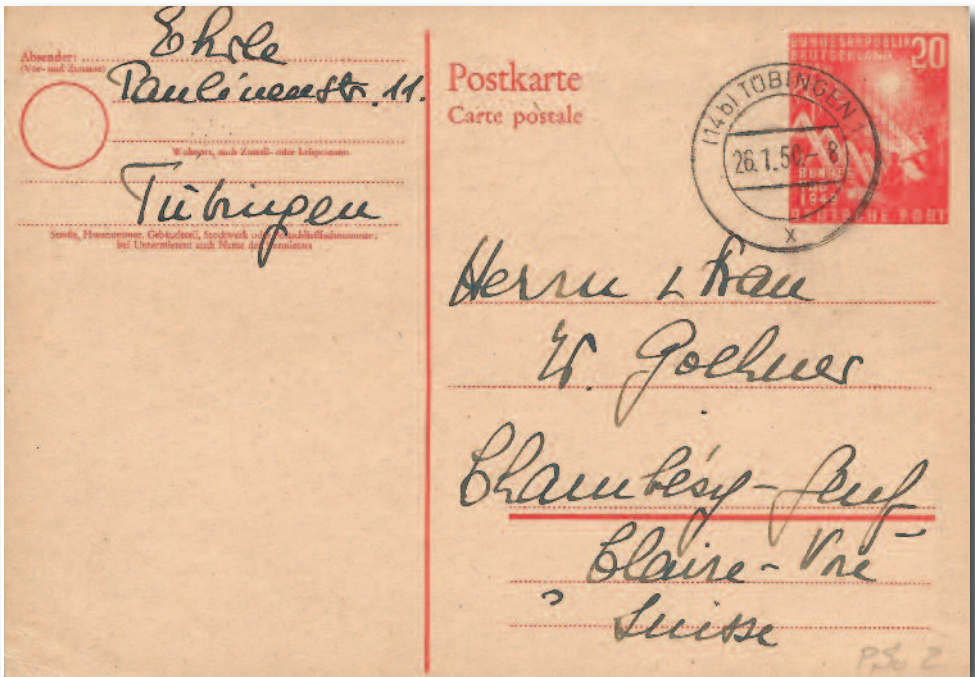 Absender:
(Vor- und Zuname)
Ehrle
Paulinenstr. 11.
Wohnort, auch Zustell- oder Leitpostamt
Tübingen
Straße, Hausnummer, Gebäudeteil, Stockwerk oder Postschließfachnummer;
bei Untermietern auch Name des Vermieters
Postkarte
Carte postale
BUNDESREPUBLIK 20
DEUTSCHLAND
BUNDES
1949
DEUTSCHE POST
(14b) TÜBINGEN 1
26.1.50.- 8
x
Herrn & Frau
W. Goehner
Chambésy - Genf
Claire-Vue
Suisse
PSo 2